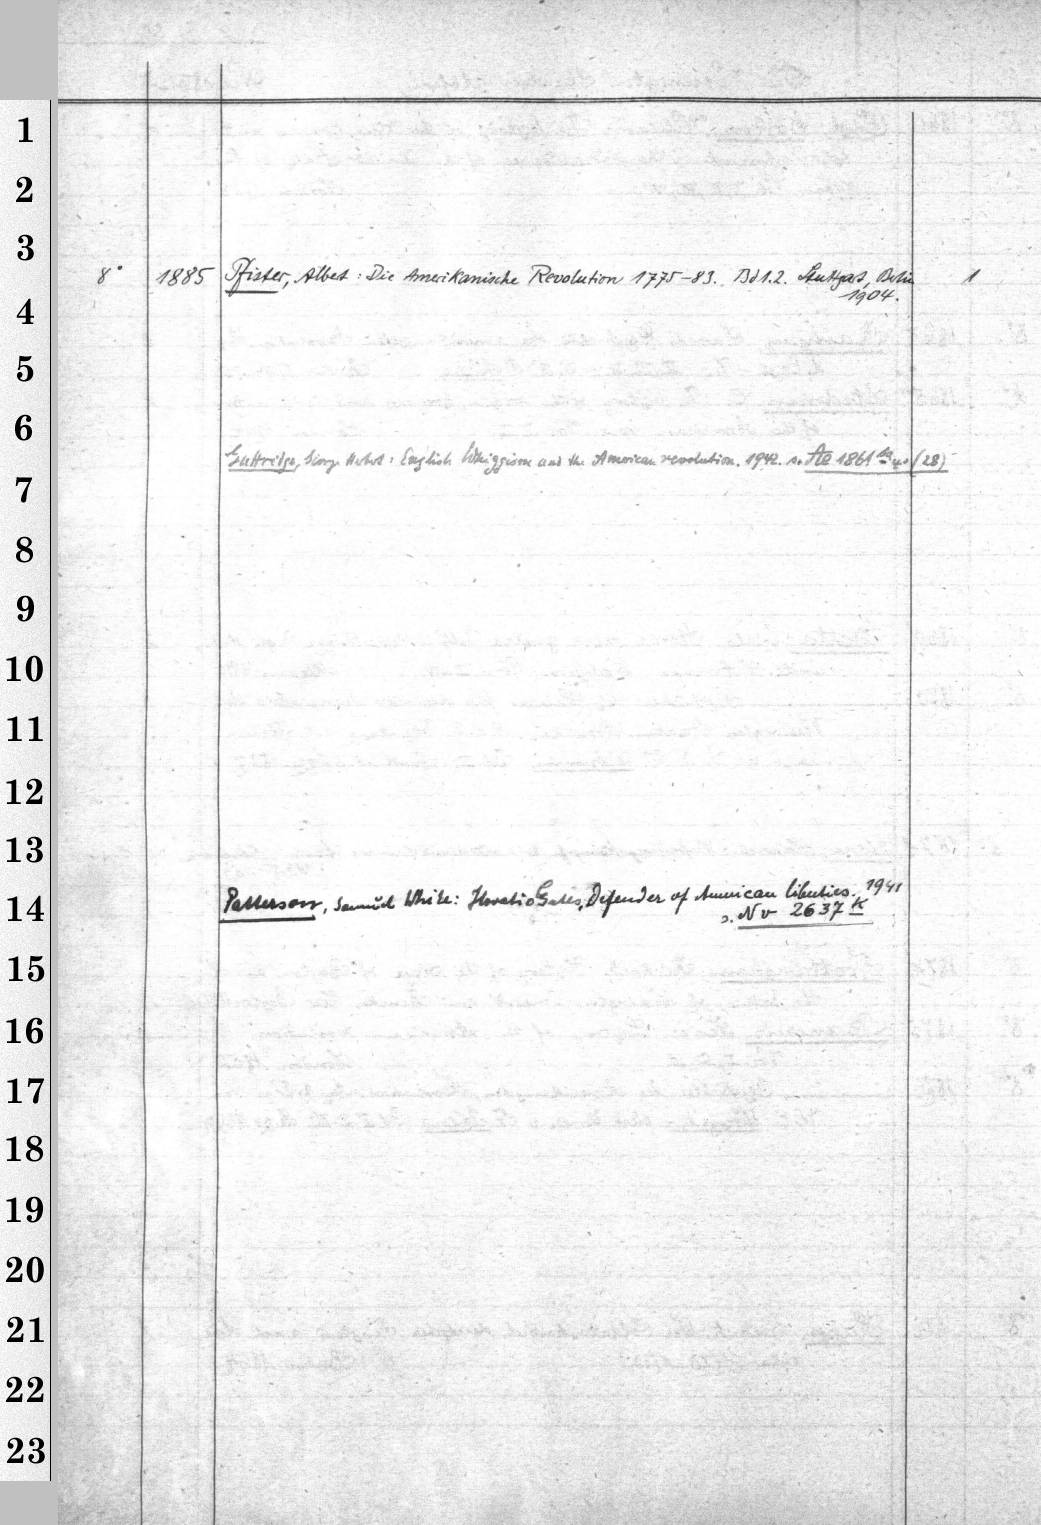 1
2
3
8° 1885 Pfister, Albert: Die Amerikanische Revolution 1775-83. Bd 1.2. Stuttgart, Berlin 1
1904.
4
5
6
Guttridge, George Herbert: English Whiggism and the American revolution. 1942. s. Ae 1861 (28)
7
8
9
10
11
12
13
Patterson, Samuel White: Horatio Gates, Defender of American liberties. 1941
s. Nv 2637 K
14
15
16
17
18
19
20
21
22
23